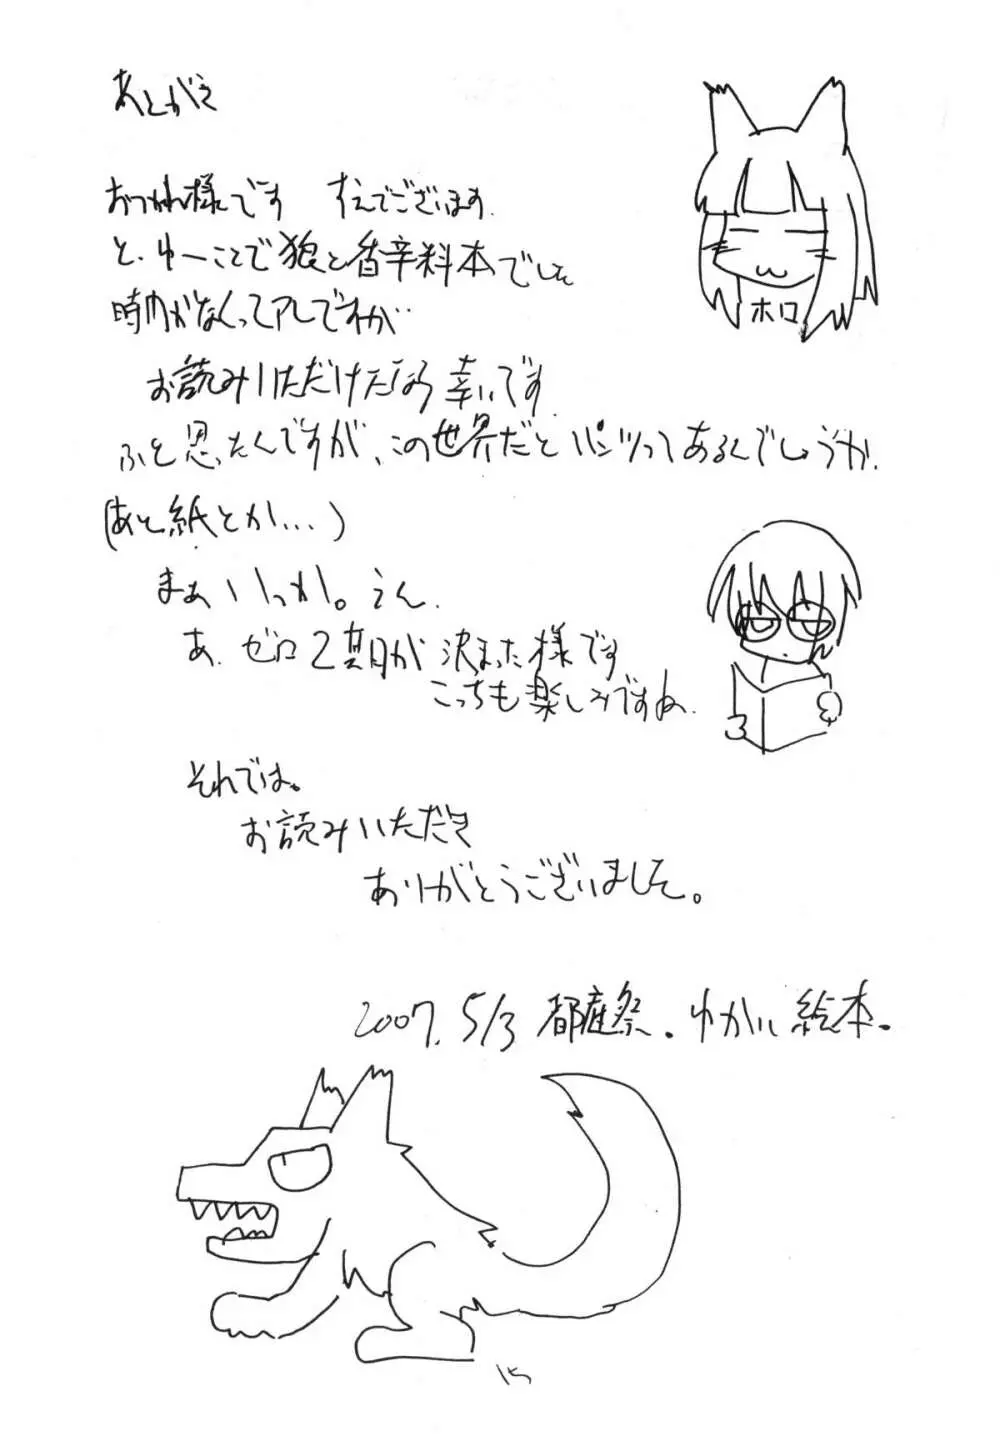 あとがき
おつかれ様です すえでございます。
と、ゆーことで狼と香辛料本でした
時間がなくってアレですが…
お読みいただけたなら幸いです
ふと思ったんですが、この世界だとパンツってあるんでしょうか。
(あと紙とか…)
まぁいっか。うん。
あ、ゼロ2期が決まった様です
こっちも楽しみですね。
それでは。
お読みいただき
ありがとうございました。
2007. 5/3 都庭祭。ゆかい絵本。
ホロ
15